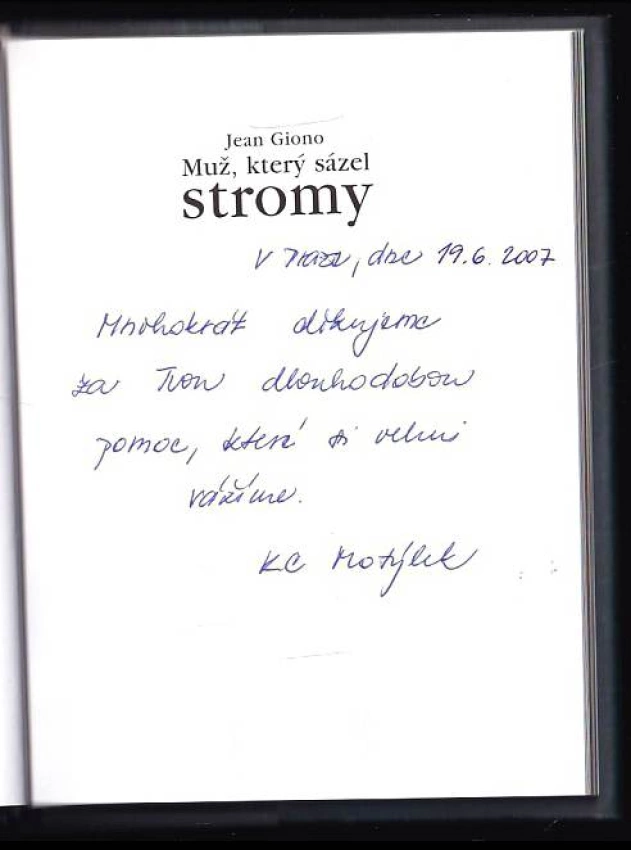 Jean Giono
Muž, který sázel
stromy
V Praze, dne 19.6.2007
Mnohokrát děkujeme
za Tvou dlouhodobou
pomoc, které si velmi
vážíme.
KC Motýlek